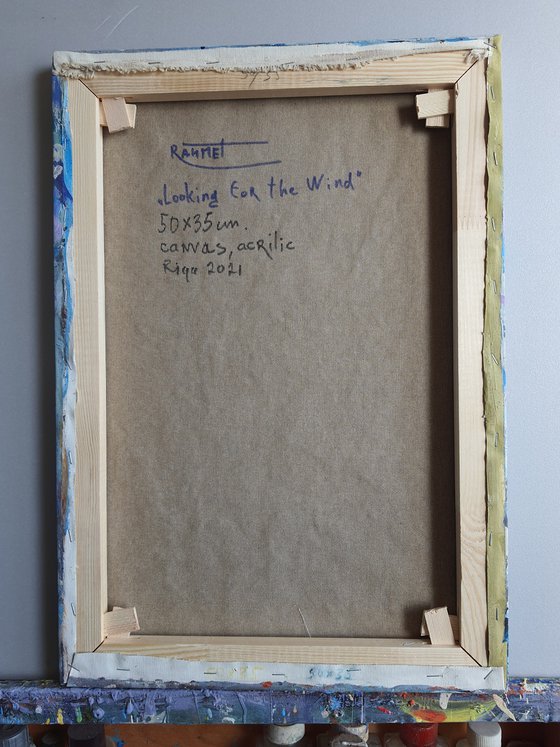 RAHMET
„Looking For the Wind"
50x35cm.
canvas, acrilic
Riga 2021